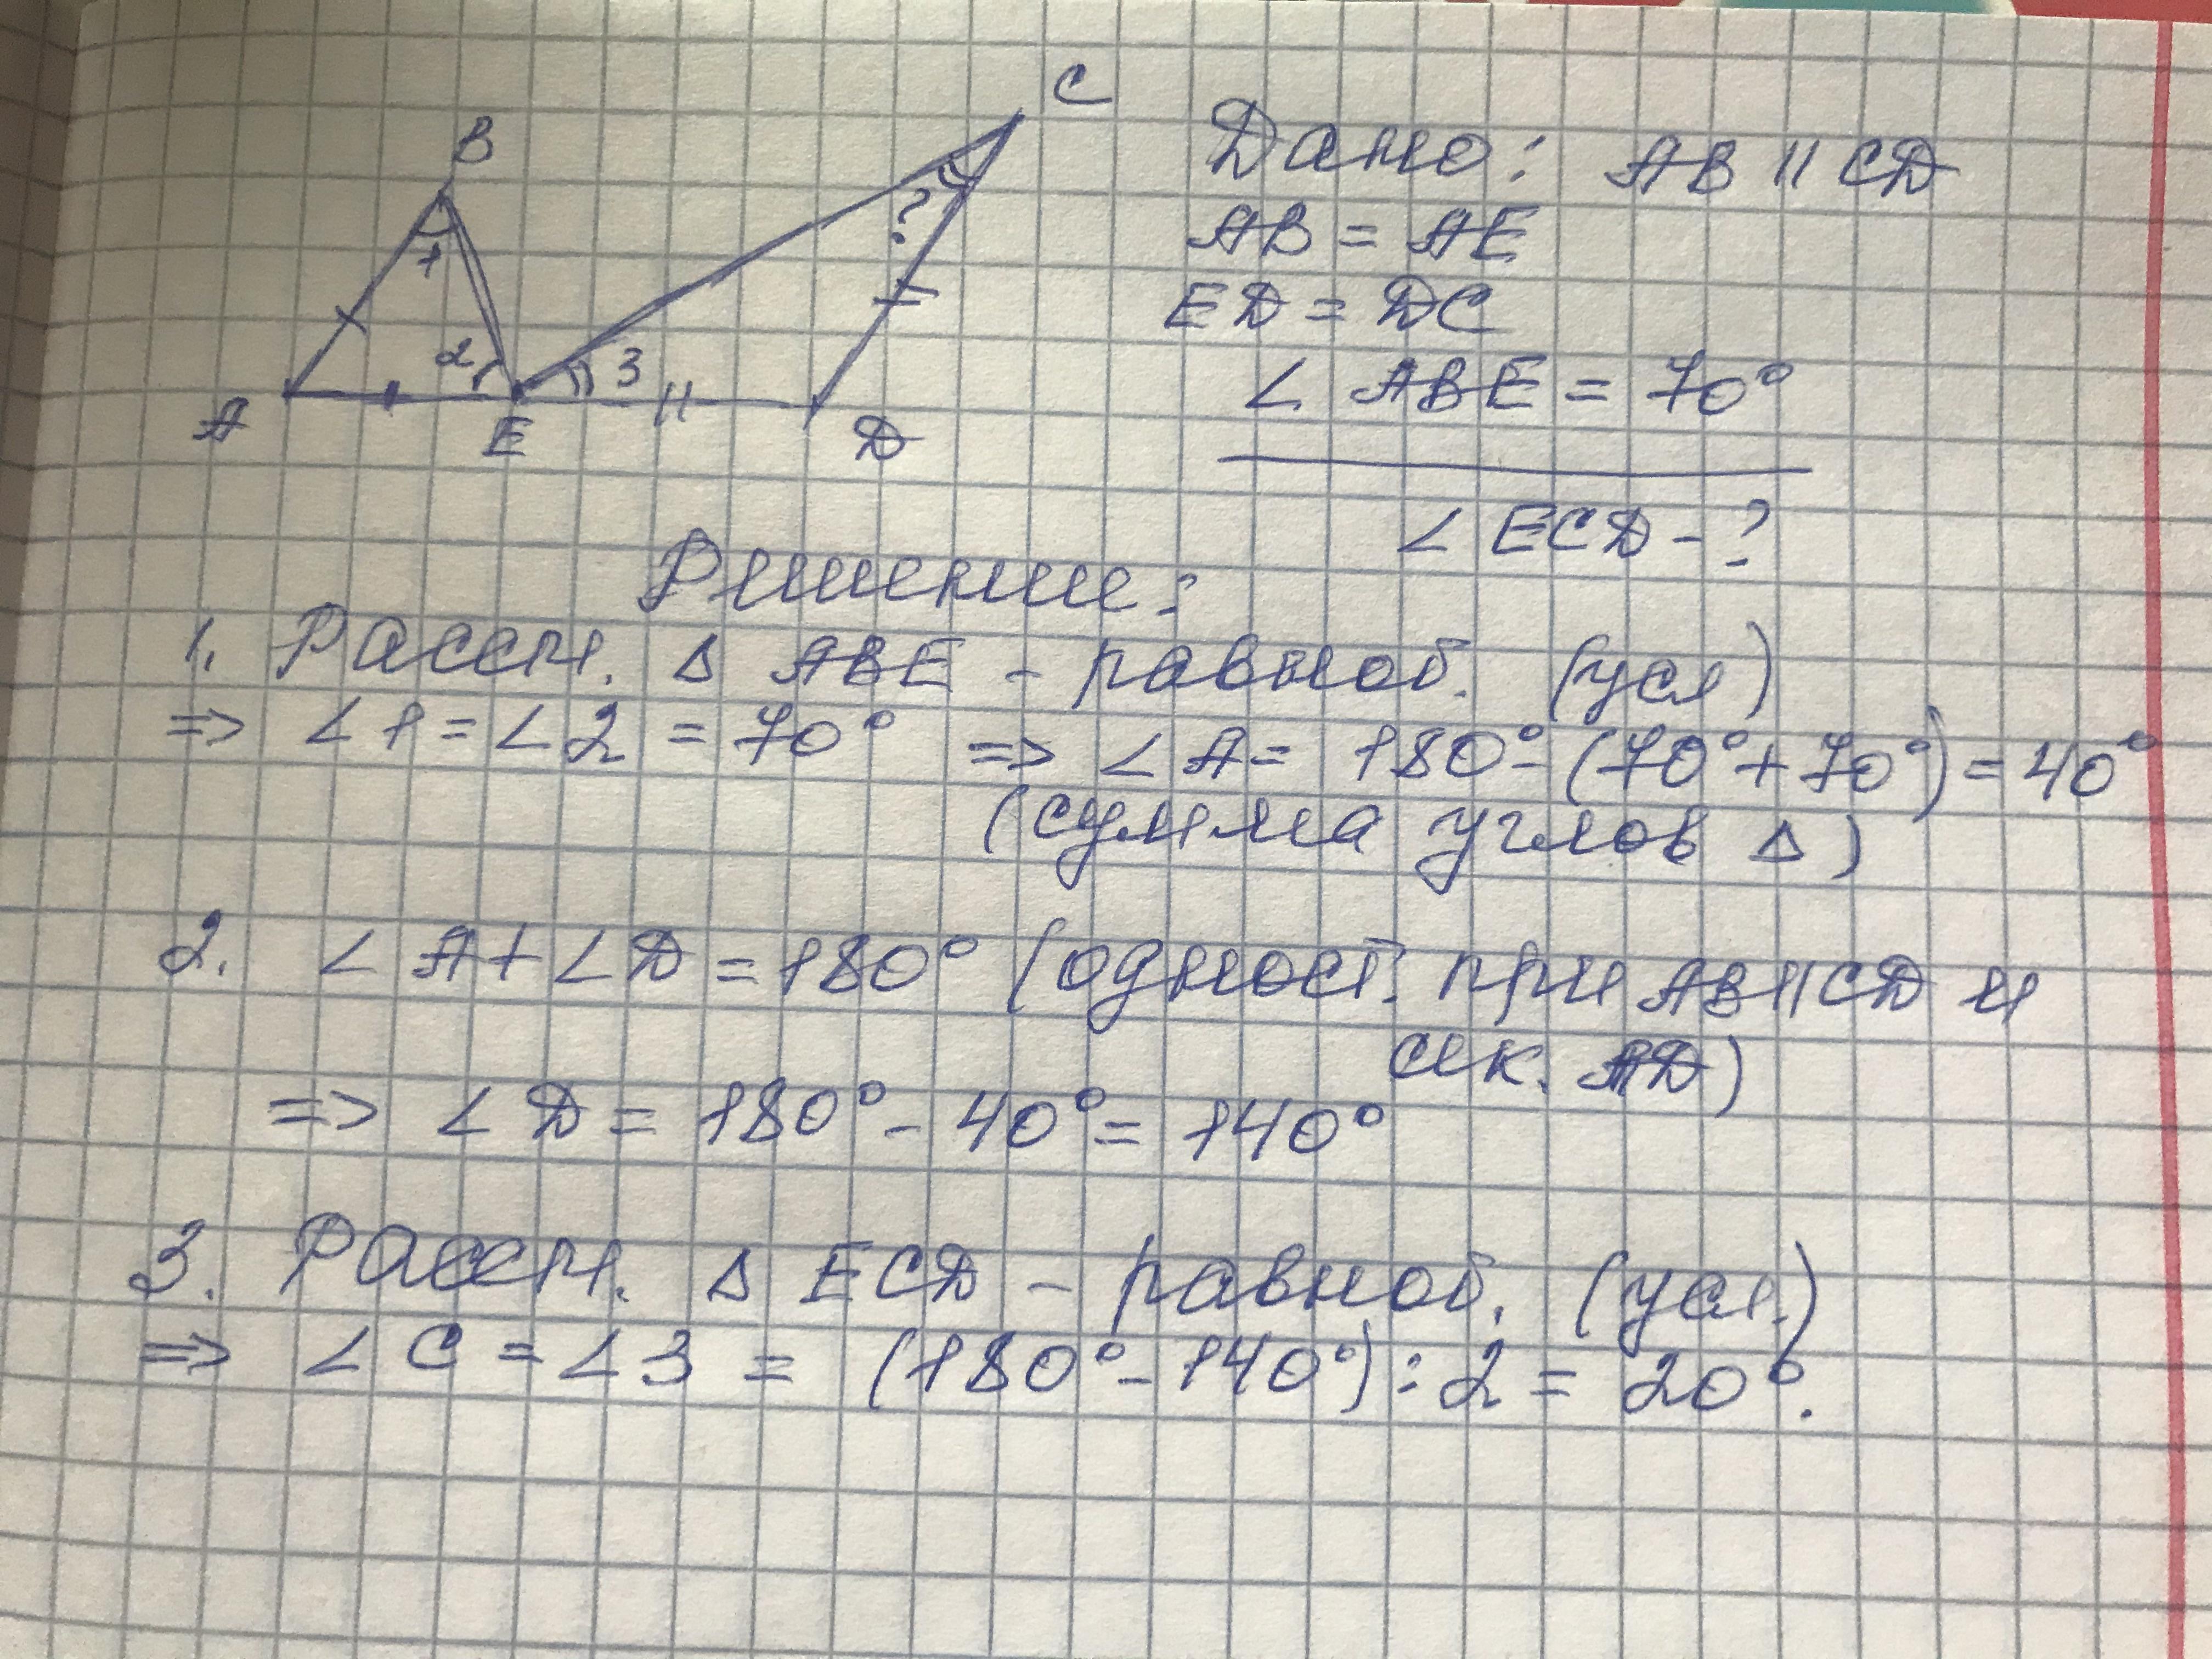 B
C
1
?
2
3
A
E
D
Дано: AB || CD
AB = AE
ED = DC
∠ ABE = 70°
∠ ECD - ?
Решение:
1. Рассм. Δ ABE - равноб. (усл)
=> ∠1 = ∠2 = 70° => ∠A = 180° - (70° + 70°) = 40°
(сумма углов Δ)
2. ∠A + ∠D = 180° (одност. при AB || CD и
сек. AD)
=> ∠D = 180° - 40° = 140°
3. Рассм. Δ ECD - равноб. (усл.)
=> ∠C = ∠3 = (180° - 140°) : 2 = 20°.